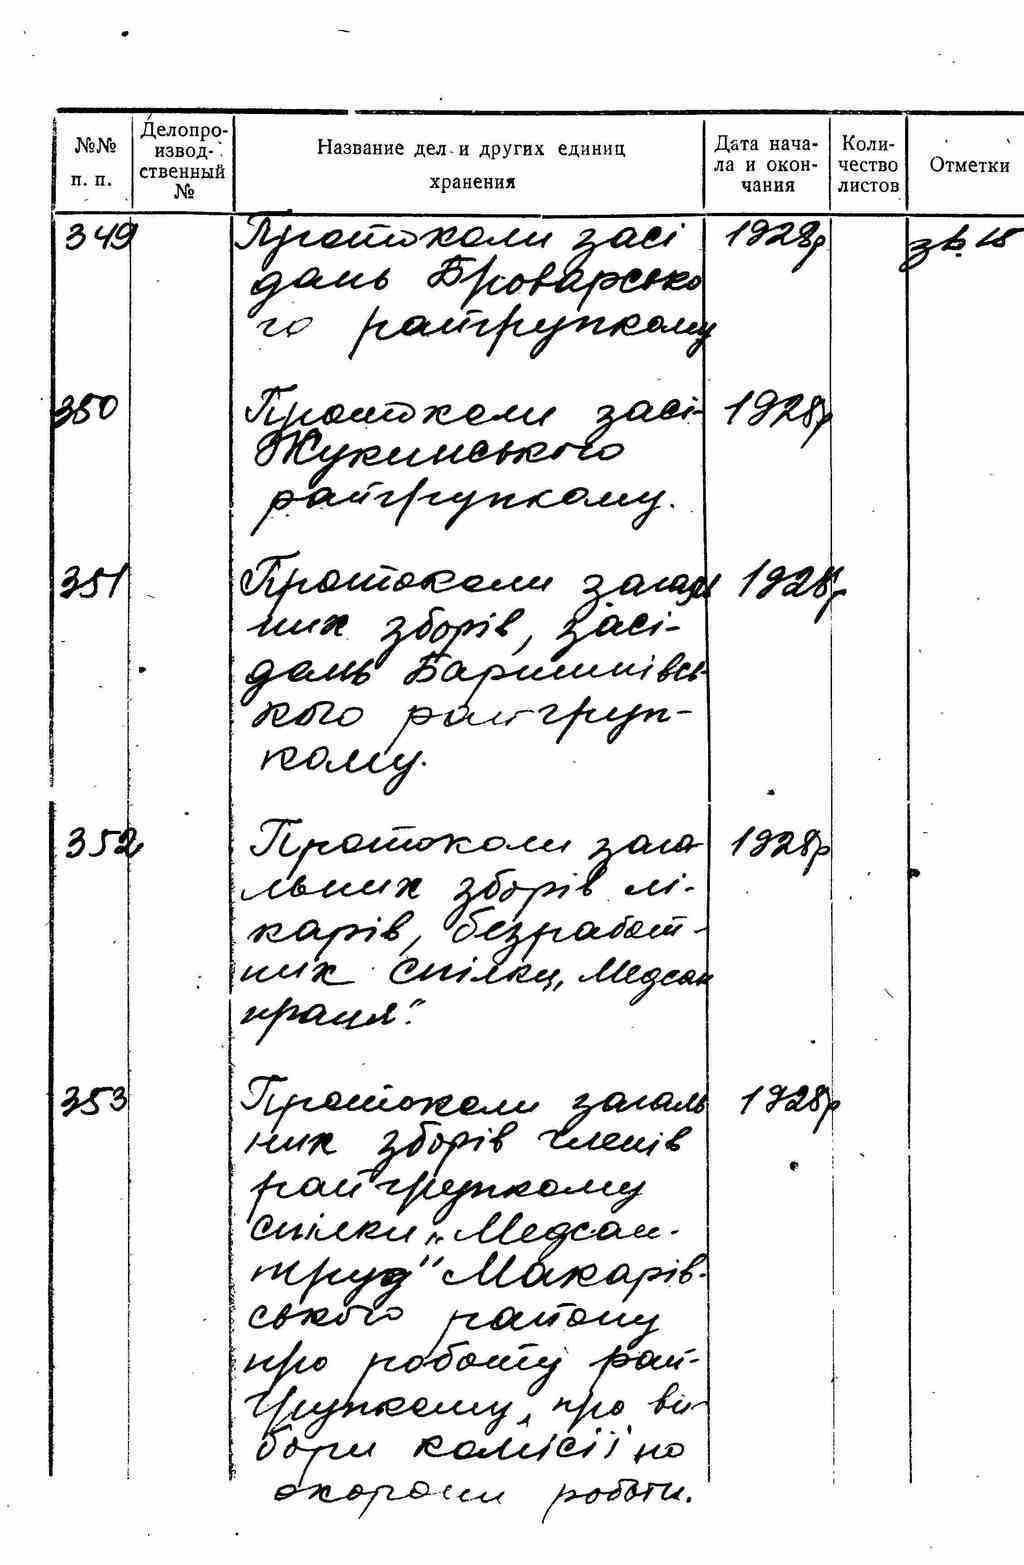 №№ п. п.
Делопро-
извод-
ственный
№
Название дел и других единиц
хранения
Дата нача-
ла и окон-
чания
Коли-
чество
листов
Отметки
349 Протоколи засі 1928р
дань Броварсько
го райгрупкому
350 Протоколи засі- 1928р
Жукинського
райгрупкому.
351 Протоколи загаль 1928р
них зборів, засі-
дань Баришівсь-
кого райгруп-
кому.
352 Протоколи зага 1928р
льних зборів лі-
карів, безработ-
них спілки „Медсан
праця".
353 Протоколи загаль 1928р
них зборів членів
райгрупкому
спілки „Медсан-
труд" Макарів-
ського району
про роботу рай-
групкому, про ви-
бори комісії по
охорони роботи.